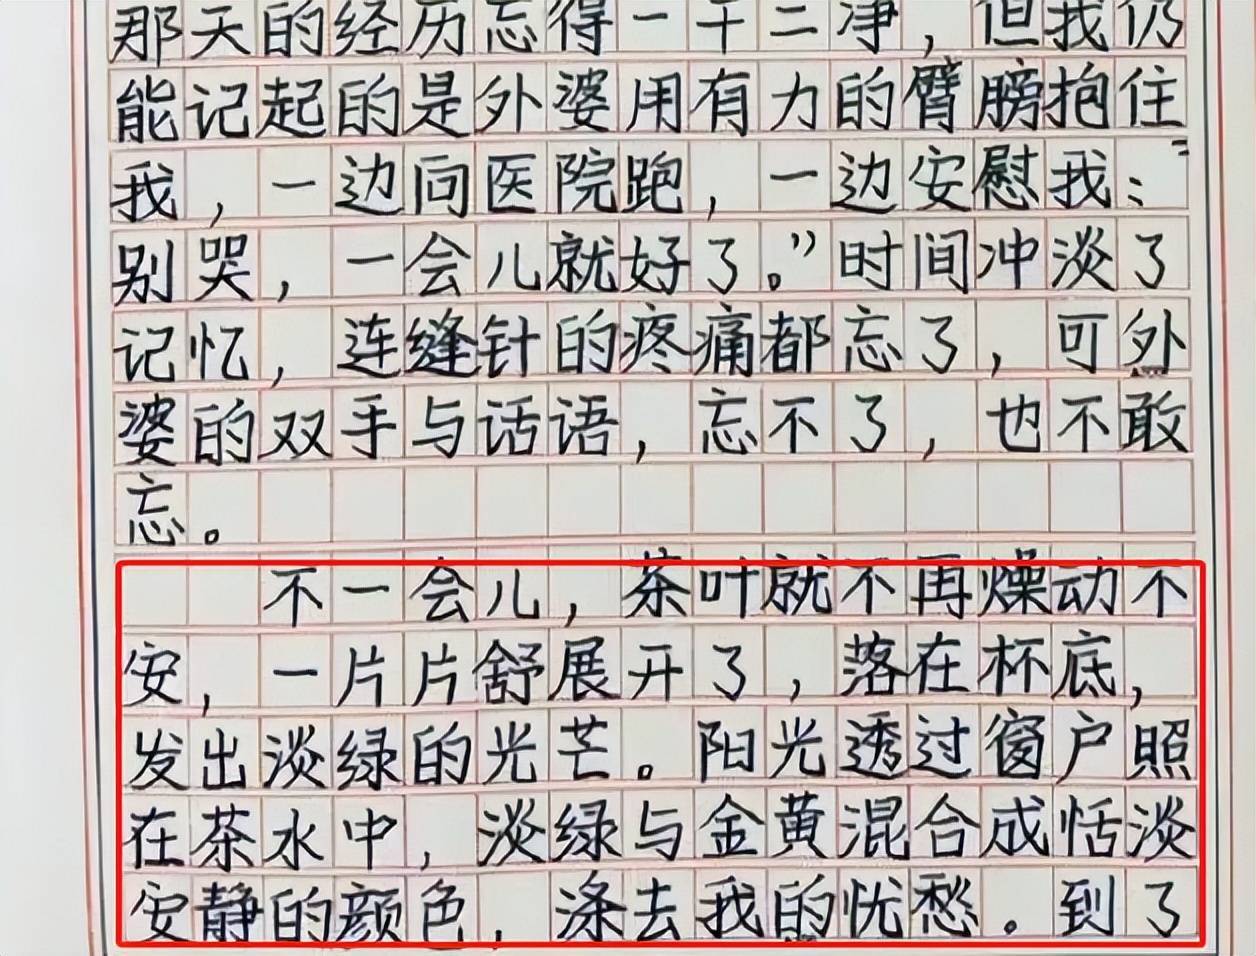 那天的经历忘得一干二净，但我仍
能记起的是外婆用有力的臂膀抱住
我，一边向医院跑，一边安慰我：“
别哭，一会儿就好了。”时间冲淡了
记忆，连缝针的疼痛都忘了，可外
婆的双手与话语，忘不了，也不敢
忘。
不一会儿，茶叶就不再燥动不
安，一片片舒展开了，落在杯底，
发出淡绿的光芒。阳光透过窗户照
在茶水中，淡绿与金黄混合成恬淡
安静的颜色，涤去我的忧愁。到了